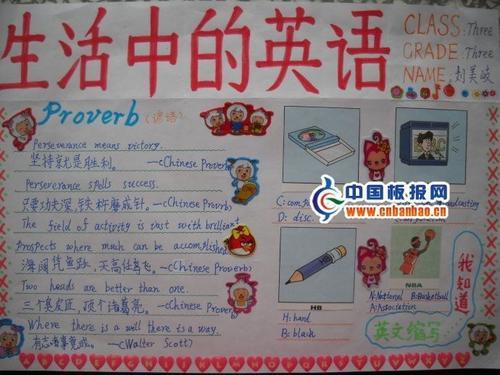 生活中的英语
CLASS: Three
GRADE: Three
NAME: 刘美
Proverb (谚语)
Perseverance means victory.
坚持就是胜利。 —<Chinese Proverb>
Perserverance spells success.
只要功夫深,铁杵磨成针。 —<Chinese Proverb>
The field of activity is vast with brilliant
prospects where much can be accomplished.
海阔凭鱼跃,天高任鸟飞。 —<Chinese Proverb>
Two heads are better than one.
三个臭皮匠,顶个诸葛亮。 —<Chinese Proverb>
Where there is a will there is a way.
有志者事竟成。 —<Walter Scott>
C:
D: disc.
中国板报网
www.cnbanbao.cn
HB
H: hard
B: black
NBA
N: National B: Basketball
A: Association
我知道
英文缩写